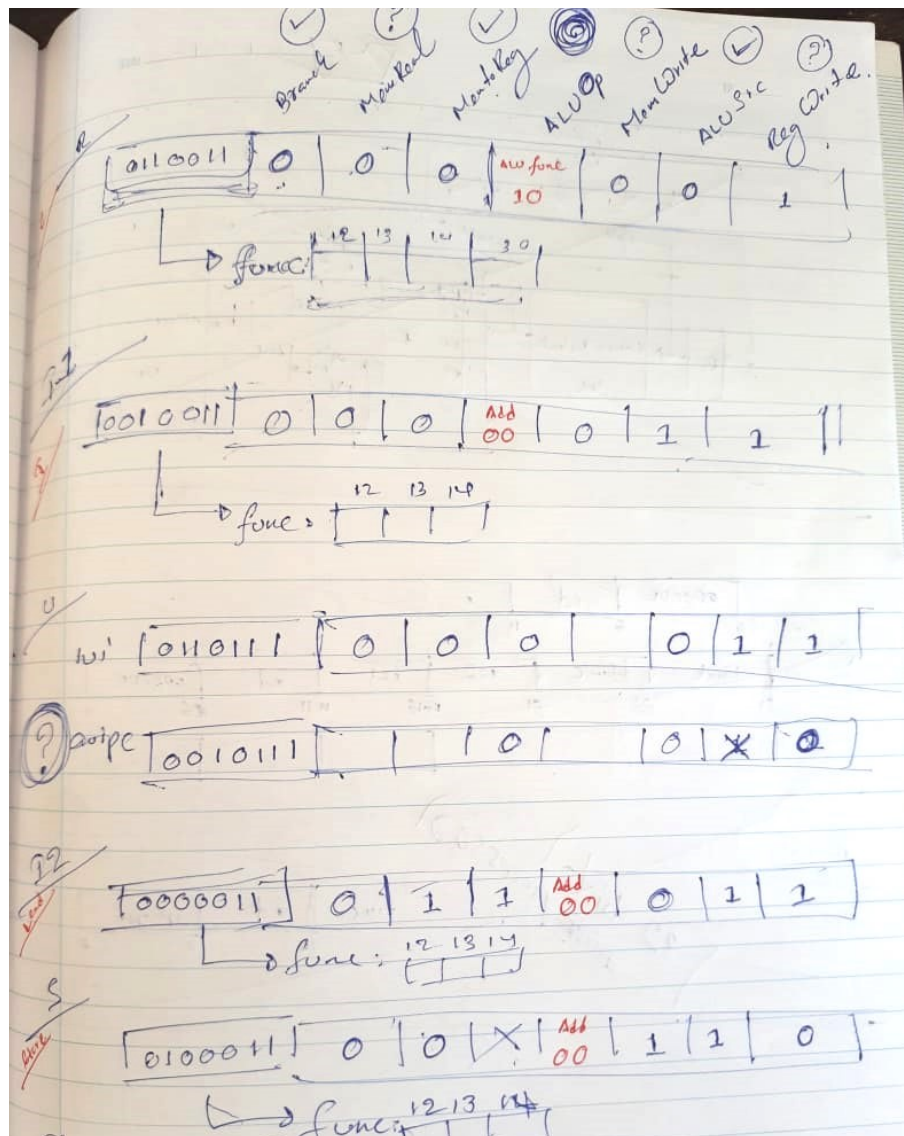 ✓ ? ✓ ? ✓ ?
Branch MemRead MemtoReg ALUOp MemWrite ALUSrc RegWrite.
R
0110011 0 0 0 ALU func 10 0 0 1
func: 12 13 14 30
I-1
0010011 0 0 0 Add 00 0 1 1
func: 12 13 14
U
lui 0110111 0 0 0 0 1 1
? auipc 0010111 0 0 X 0
I2
Load 0000011 0 1 1 Add 00 0 1 1
func: 12 13 14
S
Store 0100011 0 0 X Add 00 1 1 0
func: 12 13 14